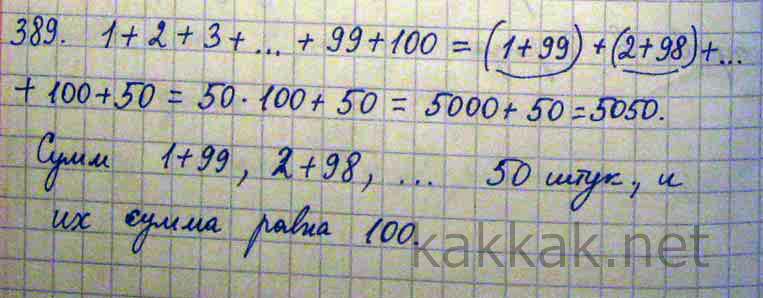 389. 1+2+3+...+99+100 = (1+99)+(2+98)+...
+100+50 = 50·100+50 = 5000+50=5050.
Сумм 1+99, 2+98, ... 50 штук, и
их сумма равна 100.
kakkak.net